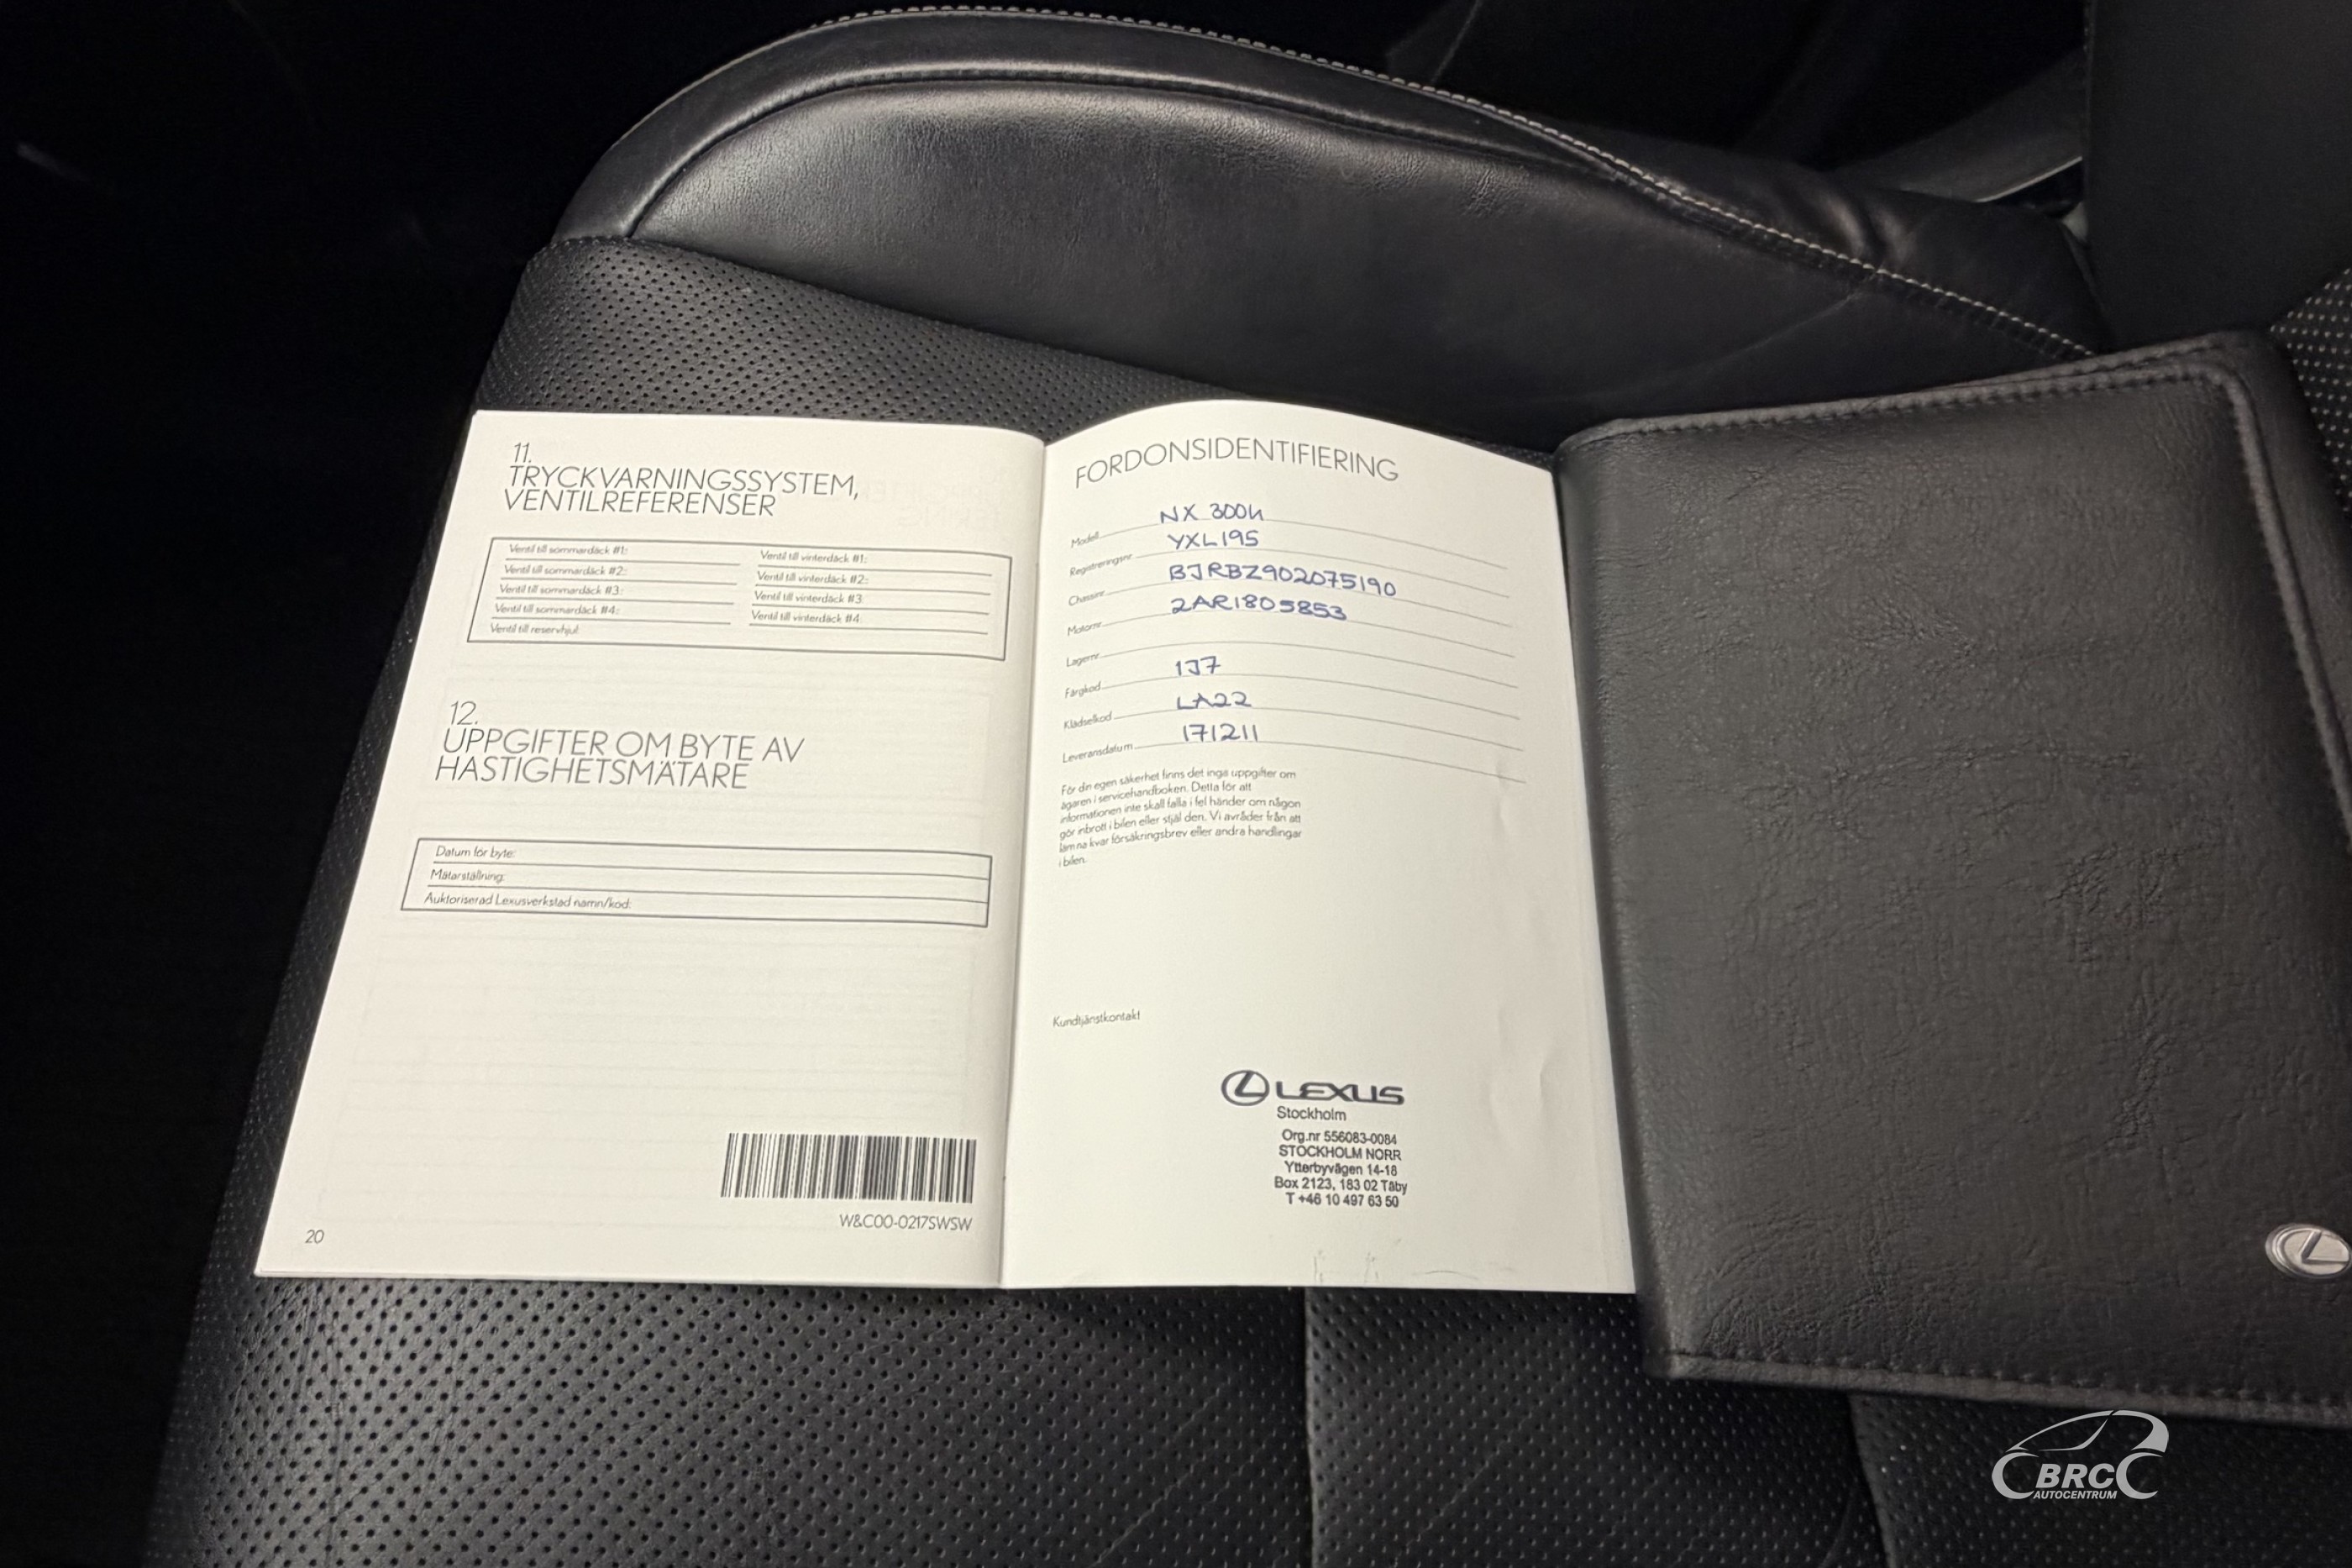 11.
TRYCKVARNINGSSYSTEM,
VENTILREFERENSER
Ventil till sommardäck #1:
Ventil till sommardäck #2:
Ventil till sommardäck #3:
Ventil till sommardäck #4:
Ventil till reservhjul:
Ventil till vinterdäck #1:
Ventil till vinterdäck #2:
Ventil till vinterdäck #3:
Ventil till vinterdäck #4:
12.
UPPGIFTER OM BYTE AV
HASTIGHETSMÄTARE
Datum för byte:
Mätarställning:
Auktoriserad Lexusverkstad namn/kod:
W&C00-0217SWSW
20
FORDONSIDENTIFIERING
Modell NX 300h
Registreringsnr YXL195
Chassinr BJRBZ902075190
Motornr 2AR1805853
Lagernr
Färgkod 1J7
Klädselkod LA22
Leveransdatum 171211
För din egen säkerhet finns det inga uppgifter om
ägaren i servicehandboken. Detta för att
informationen inte skall falla i fel händer om någon
gör inbrott i bilen eller stjäl den. Vi avråder från att
lämna kvar försäkringsbrev eller andra handlingar
i bilen.
Kundtjänstkontakt
LEXUS
Stockholm
Org.nr 556083-0084
STOCKHOLM NORR
Ytterbyvägen 14-18
Box 2123, 183 02 Täby
T +46 10 497 63 50
BRC
AUTOCENTRUM